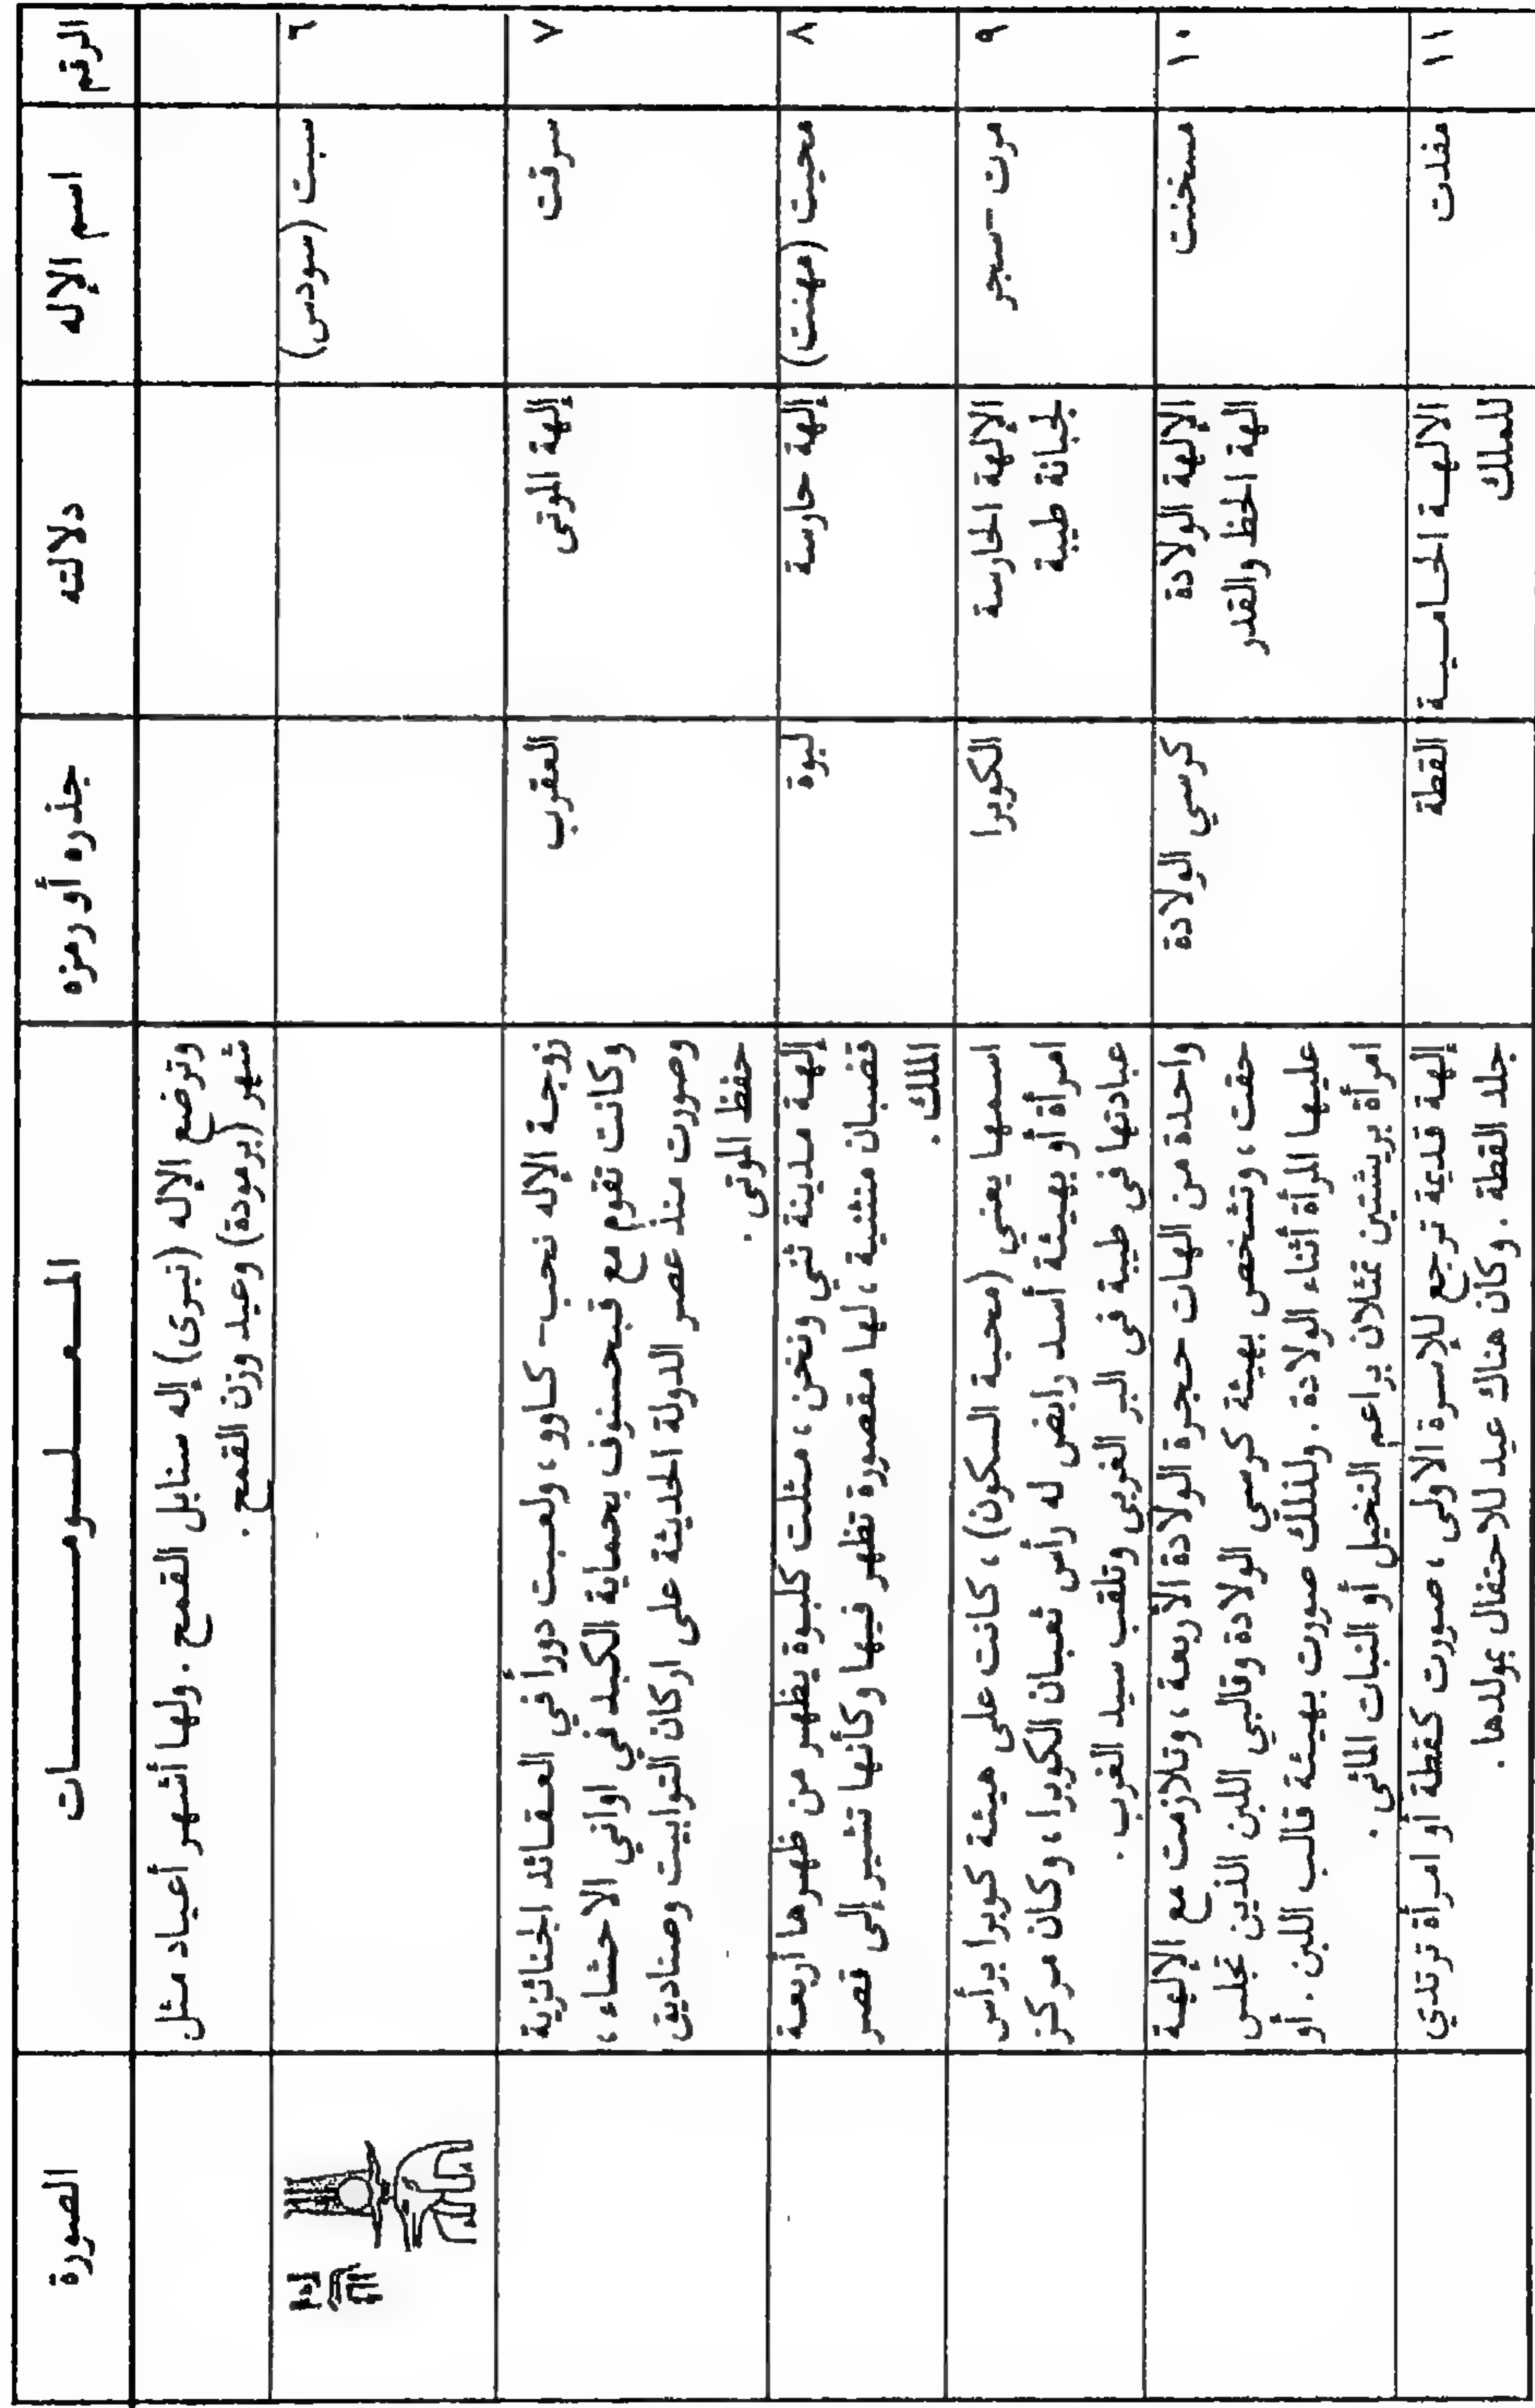 الرقم	اسم الإله	دلالته	جذره أو رمزه	المعلومات	الصورة
وترضع الإله (نبرى) إله سنابل القمح . ولها أشهر أعياد مثل
شهر (برمودة) وعيد وزن القمح .
٦	سبت (سودس)
٧	سرقت	إلهة الموتى	العقرب	زوجة الإله نحب - كاوو ، ولعبت دوراً في العقائد الجنائزية
وكانت تقوم مع قبحسنوف بحماية الكبد في اواني الاحشاء ،
وصورت منذ عصر الدولة الحديثة على اركان التوابيت وصناديق
حفظ الموتى .
٨	محيت (مهنت)	إلهة حارسة	لبوة	إلهة مدينة ثني ونخن ، مثلت كلبوة يظهر من ظهرها أربعة
قضبان منثنية ، لها مقصورة تظهر فيها وكأنها تشير إلى قصر
الملك .
٩	مرت - سجر	الإلهة الحارسة	الكوبرا	اسمها يعني (محبة السكون) ، كانت على هيئة كوبرا برأس
لجبانة طيبة	امرأة أو بهيئة أسد رابض له رأس ثعبان الكوبرا ، وكان مركز
عبادتها في طيبة في البر الغربي وتلقب سيد الغرب .
١٠	مسخنت	الإلهة الولادة	كرسي الولادة	واحدة من الهات حجرة الولادة الأربعة ، وتلازمت مع الإلهة
الهة الحظ والقدر	حقت ، وتشخص بهيئة كرسي الولادة وقالبي اللبن الذين تجلس
عليها المرأة أثناء الولادة . ولذلك صورت بهيئة قالب اللبن . أو
امرأة بريشتين تمثلان براعم النخيل أو النبات المائى .
١١	مفدت	الالهة الحامية	القطة	إلهة قديمة ترجع للإسرة الاولى ، صورت كقطة أو امرأة ترتدي
للملك	جلد القطة . وكان هناك عيد للاحتفال بمولدها .